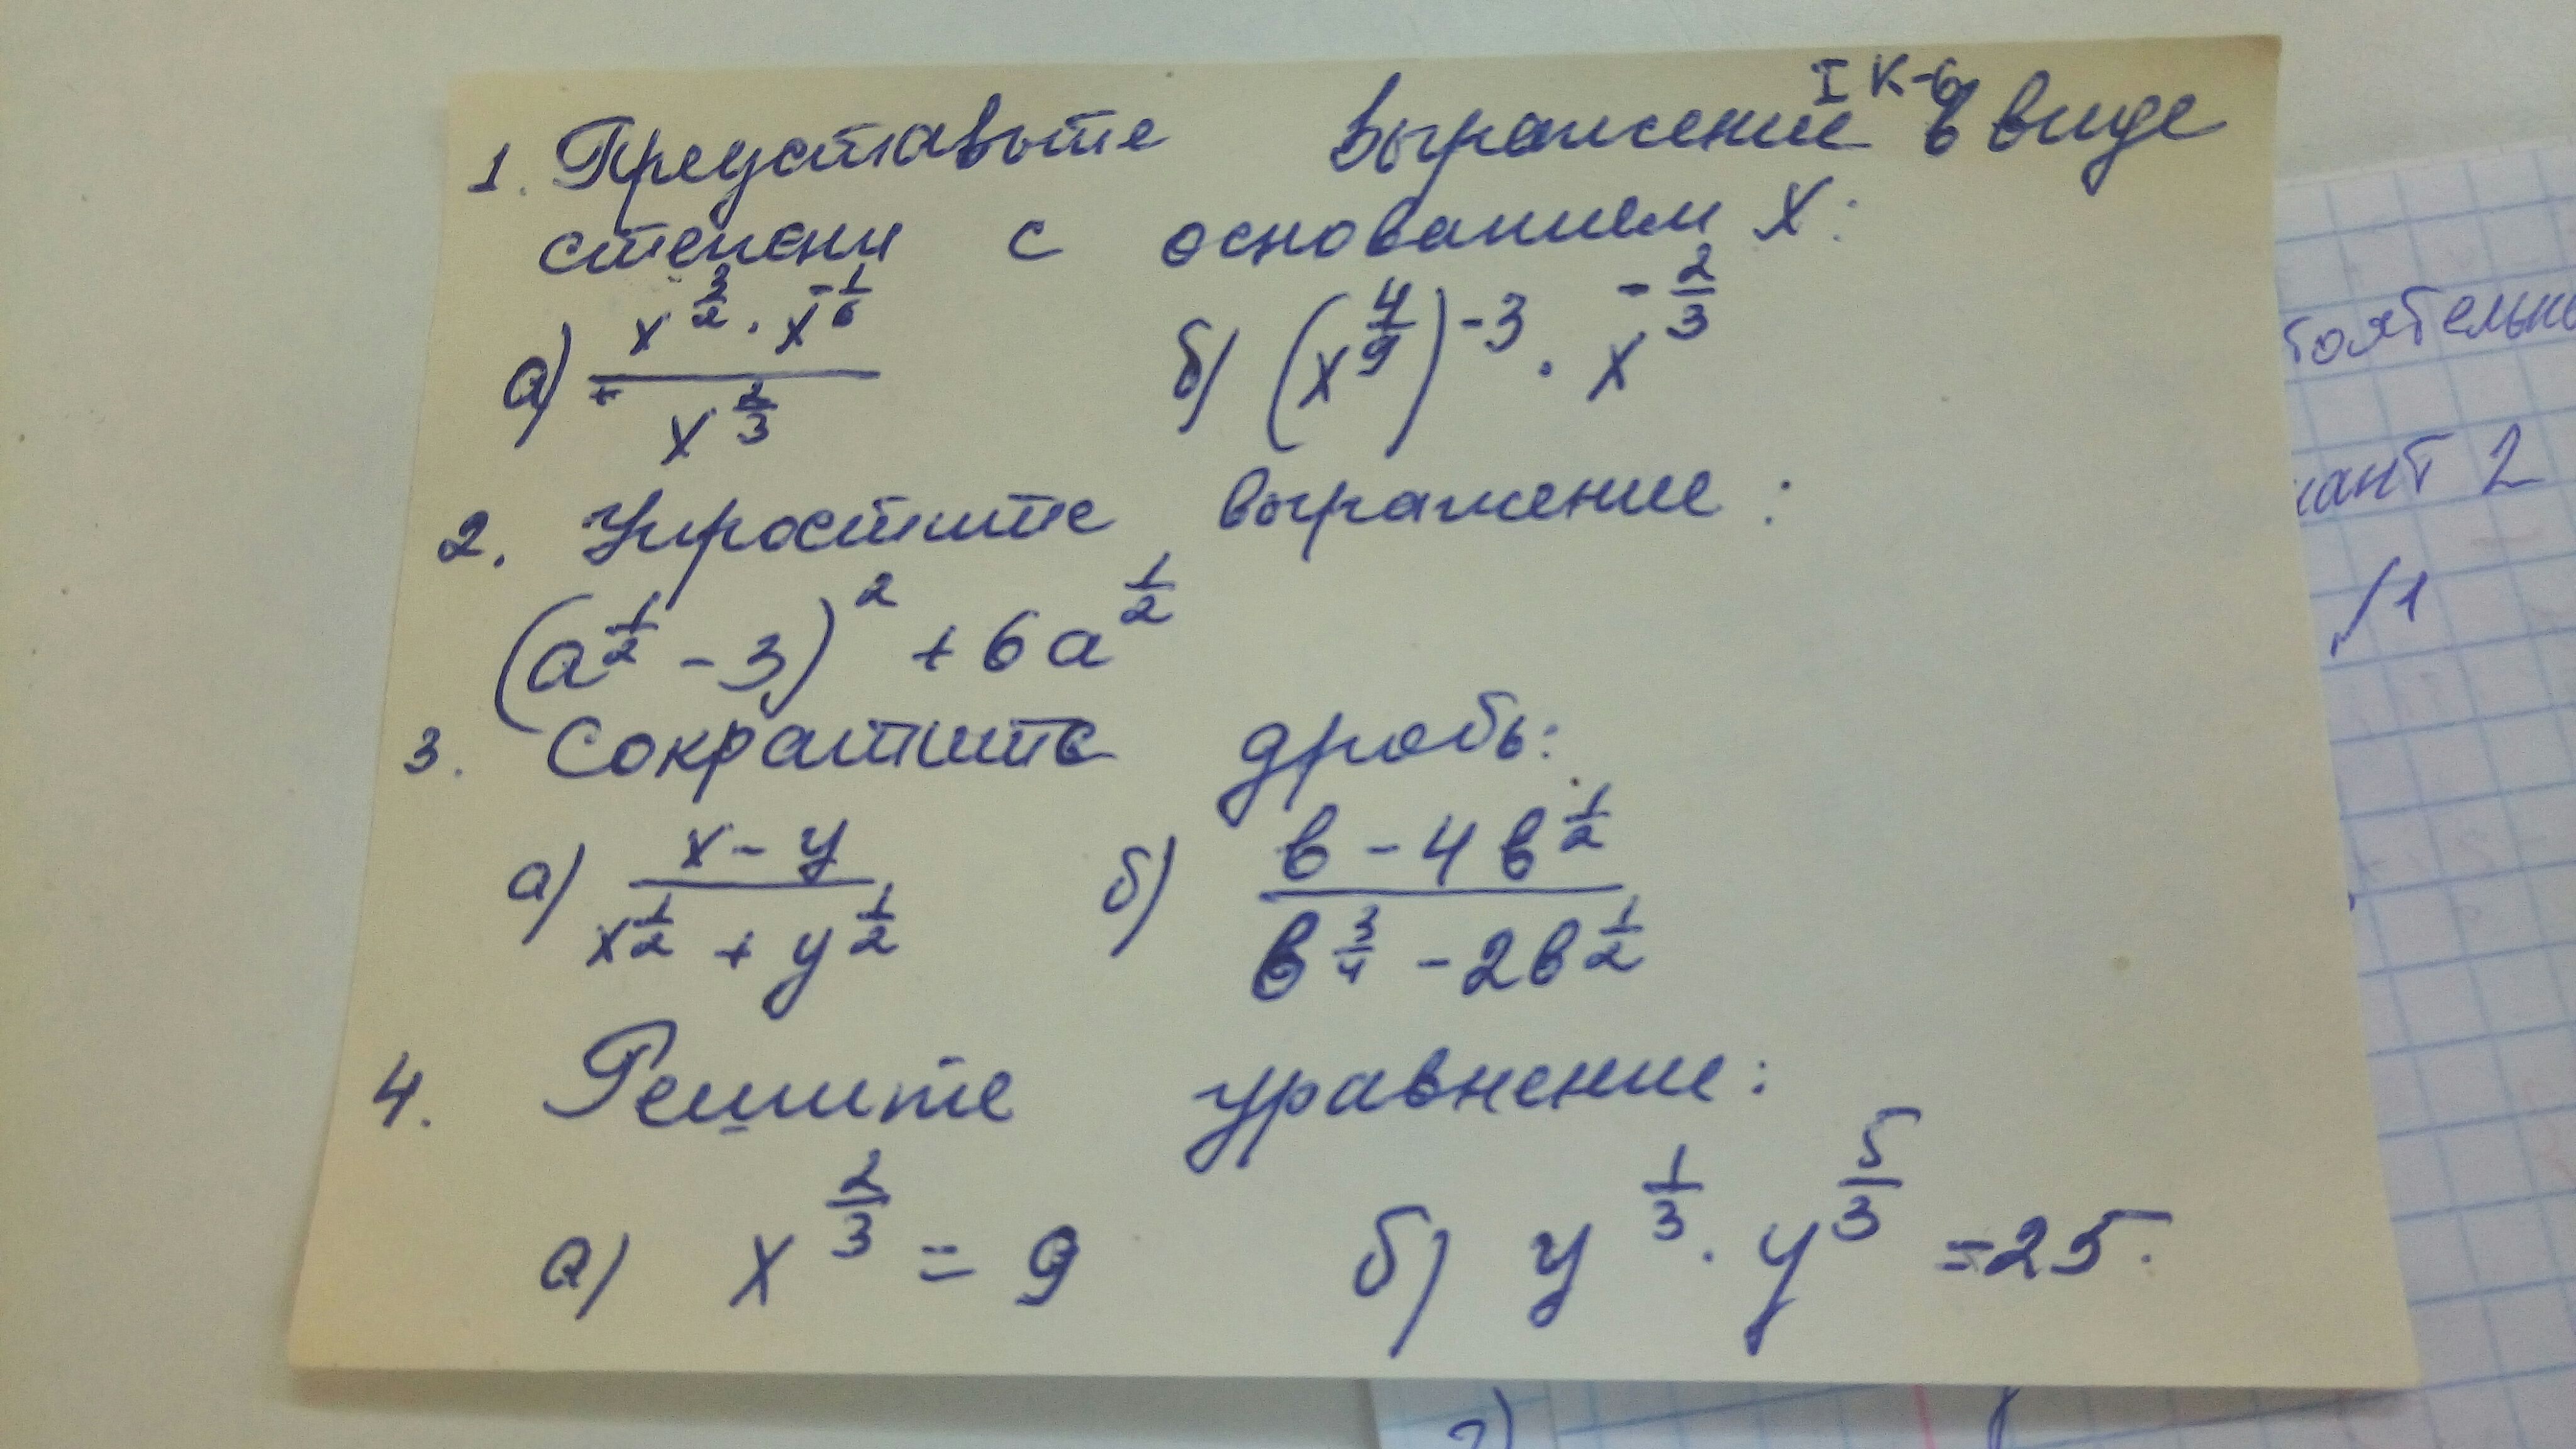 I К-6
1. Представьте выражение в виде
степени с основанием X:
а) (x^(3/2) · x^(-1/6)) / x^(2/3) б) (x^(4/9))^(-3) · x^(-2/3)
2. Упростите выражение:
(a^(1/2) - 3)^2 + 6a^(1/2)
3. Сократите дробь:
а) (x - y) / (x^(1/2) + y^(1/2)) б) (в - 4в^(1/2)) / (в^(3/4) - 2в^(1/2))
4. Решите уравнение:
а) x^(2/3) = 9 б) y^(1/3) · y^(5/3) = 25.
2
/1
2)